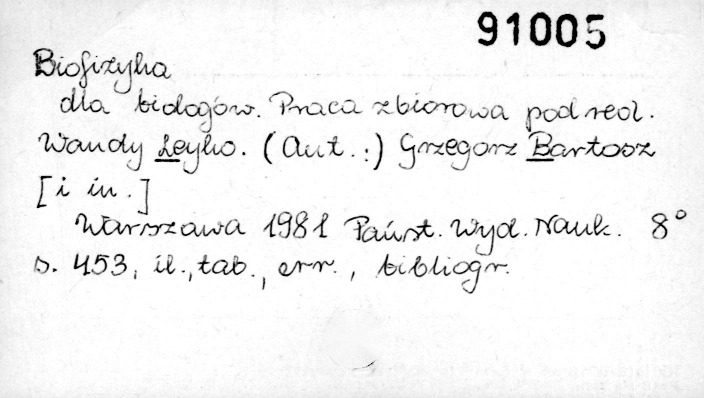 91005
Biofizyka
dla biologów. Praca zbiorowa pod red.
Wandy Leyko. (Aut.:) Grzegorz Bartosz
[i in.]
Warszawa 1981 Państ. Wyd. Nauk. 8°
s. 453, il., tab., err., bibliogr.